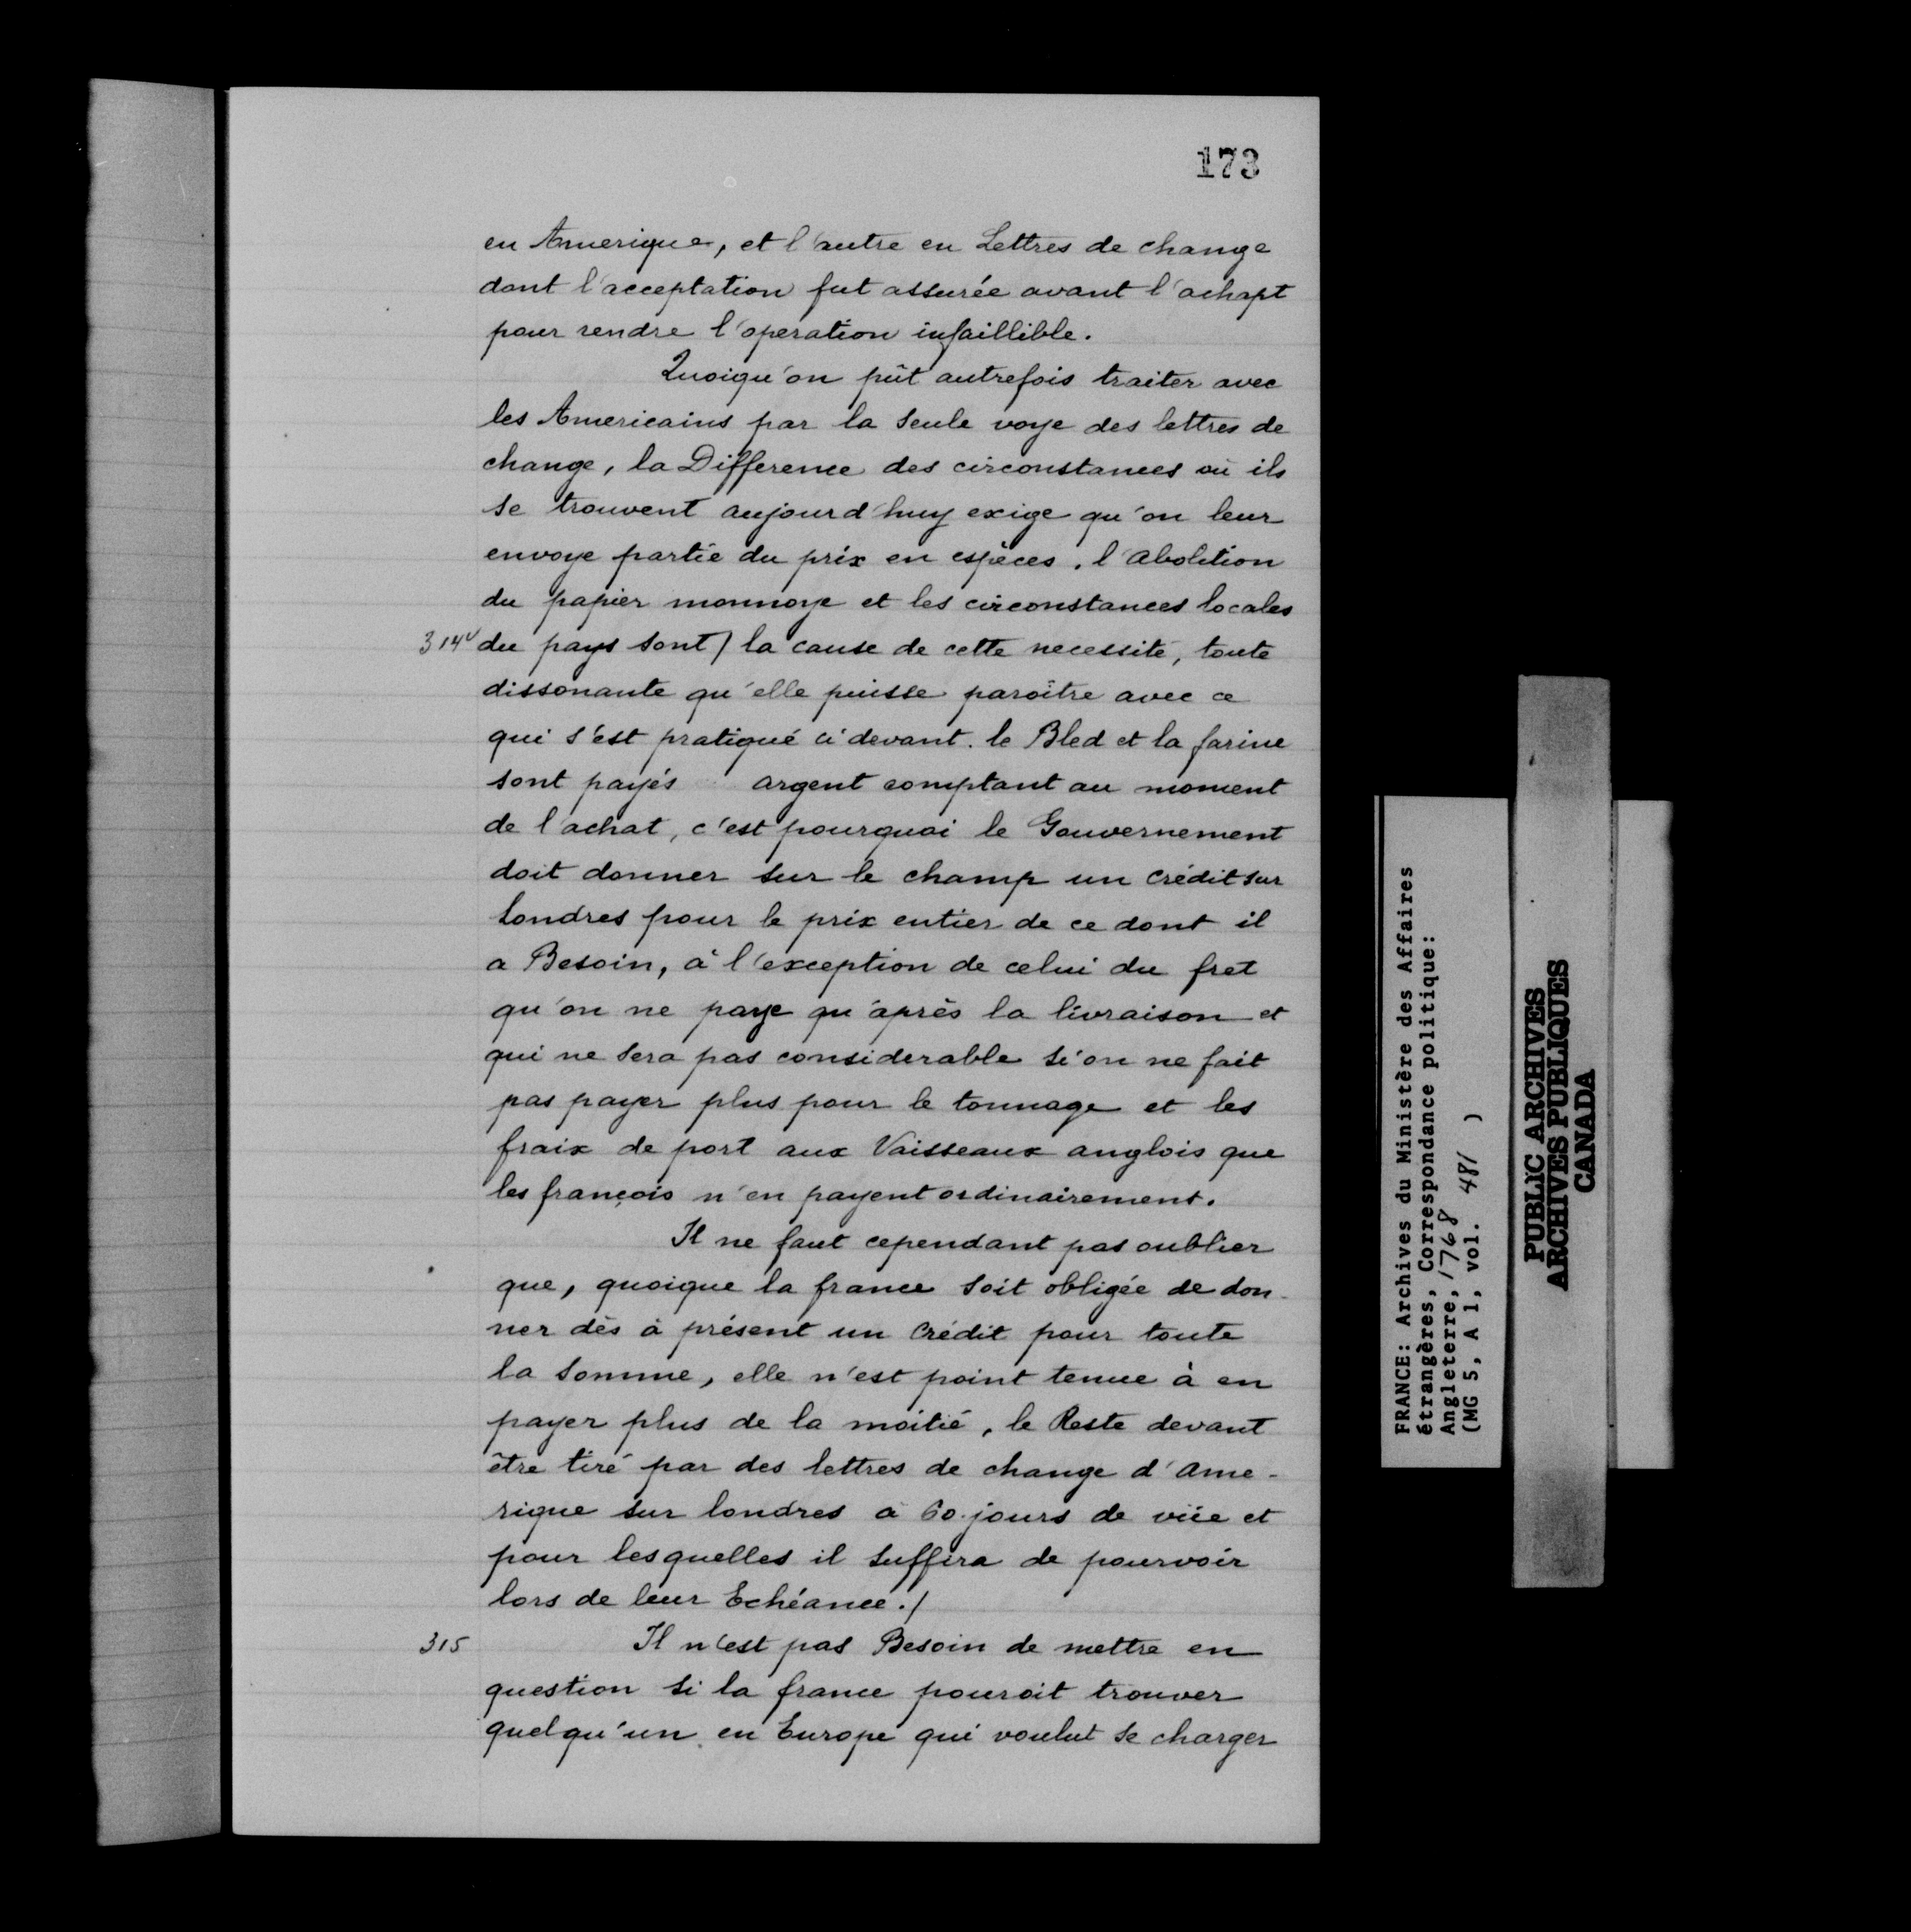 173
en Amerique, et l'autre en Lettres de change
dont l'acceptation fut assurée avant l'achapt
pour rendre l'operation infaillible.
Quoiqu'on pût autrefois traiter avec
les Americains par la seule voye des lettres de
change, la Difference des circonstances où ils
se trouvent aujourd'huy exige qu'on leur
envoye partie du prix en espèces. l'abolition
du papier monnoye et les circonstances locales
314v du pays sont / la cause de cette necessité, toute
dissonante qu'elle puisse paroître avec ce
qui s'est pratiqué ci devant. le Bled et la farine
sont payés argent comptant au moment
de l'achat, c'est pourquoi le Gouvernement
doit donner sur le champ un crédit sur
Londres pour le prix entier de ce dont il
a Besoin, à l'exception de celui du fret
qu'on ne paye qu'après la livraison et
qui ne sera pas considerable si on ne fait
pas payer plus pour le tonnage et les
fraix de port aux Vaisseaux anglois que
les françois n'en payent ordinairement.
Il ne faut cependant pas oublier
que, quoique la france soit obligée de don-
ner dès à présent un Crédit pour toute
la somme, elle n'est point tenue à en
payer plus de la moitié, le Reste devant
être tiré par des lettres de change d'Ame-
rique sur londres à 60 jours de vüe et
pour lesquelles il suffira de pourvoir
lors de leur Echéance. /
315 Il n'est pas Besoin de mettre en
question si la france pouroit trouver
quelqu'un en Europe qui voulut se charger
FRANCE: Archives du Ministère des Affaires
étrangères, Correspondance politique:
Angleterre, 1768
(MG 5, A 1, vol. 481 )
PUBLIC ARCHIVES
ARCHIVES PUBLIQUES
CANADA